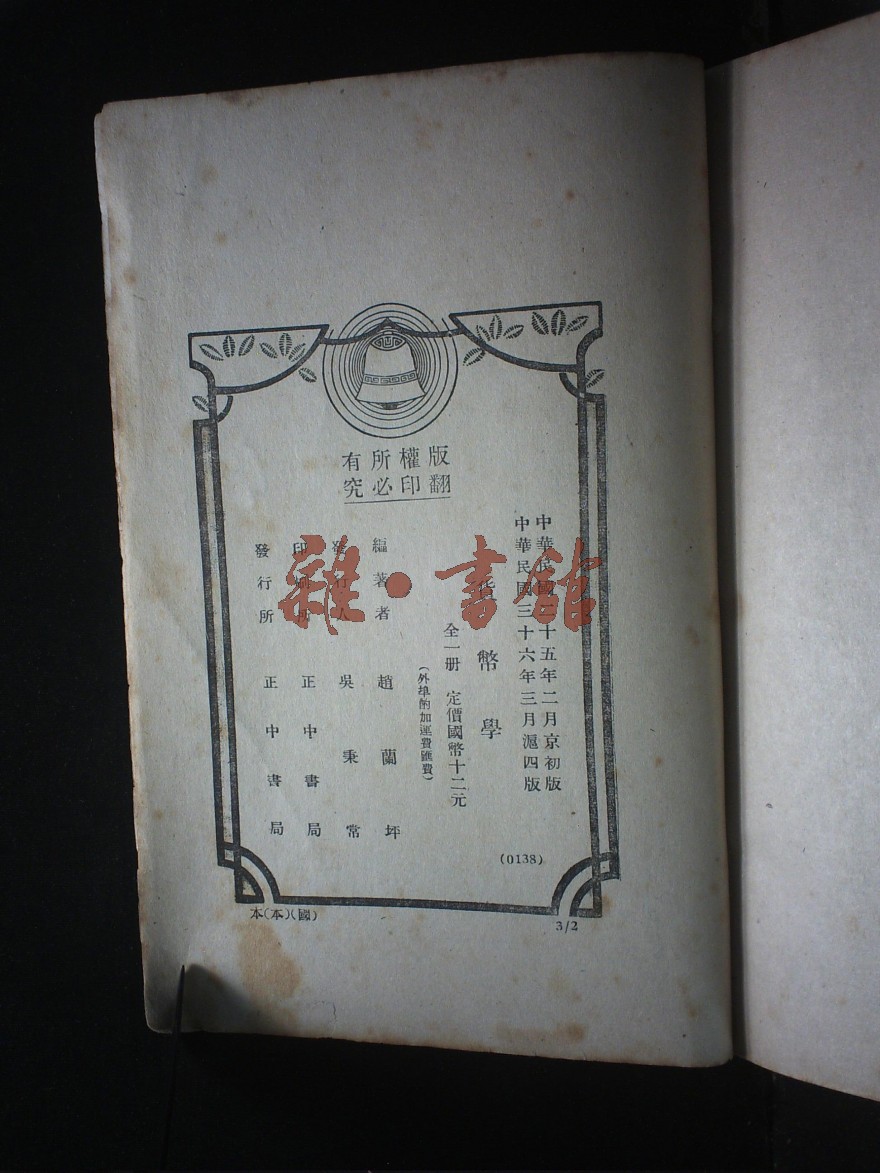 版權所有
翻印必究
中華民國二十五年二月京初版
中華民國三十六年三月滬四版
貨幣學
全一册 定價國幣十二元
(外埠酌加運費匯費)
編著者 趙蘭坪
發行人 吳秉常
印刷所 正中書局
發行所 正中書局
(0138)
本(本)(國)
3/2
雜·書館